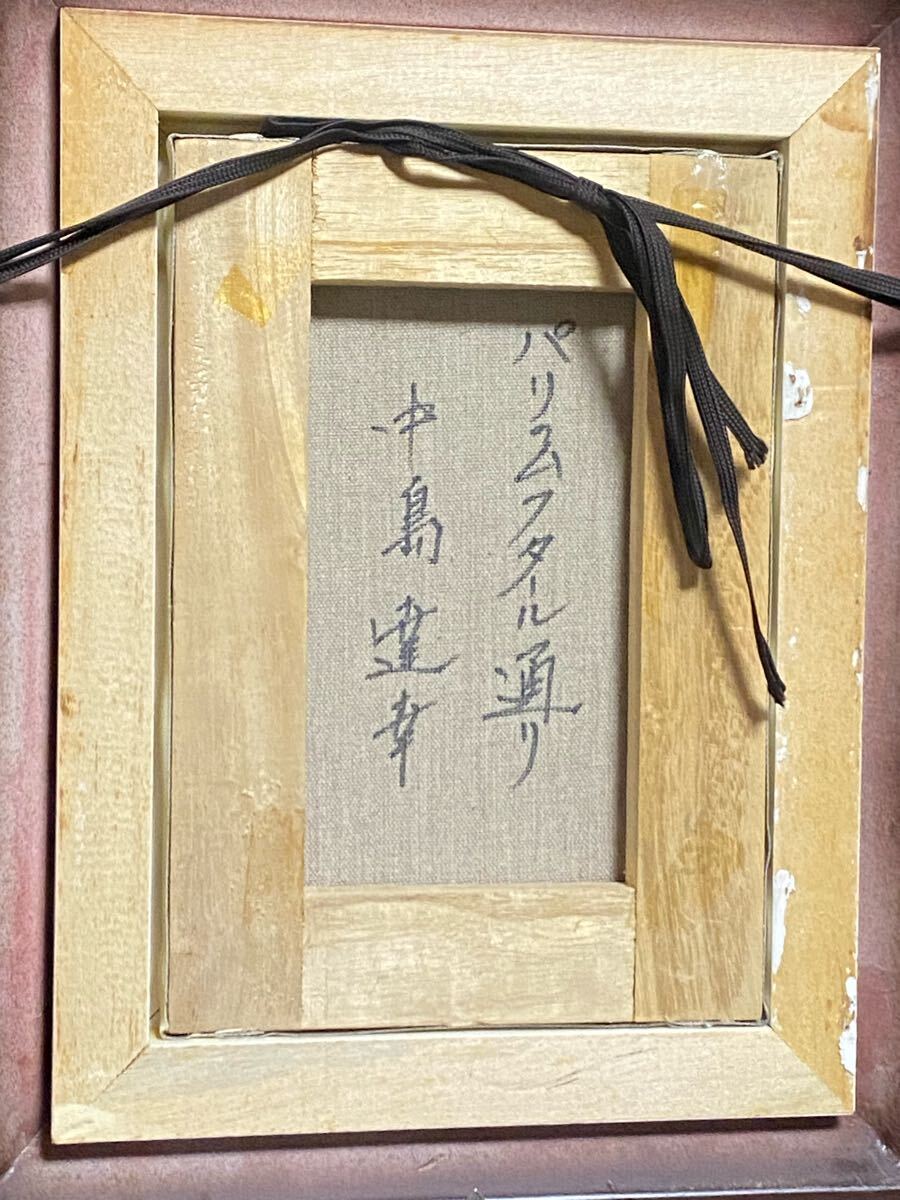 パリムフタール通り
中島達幸